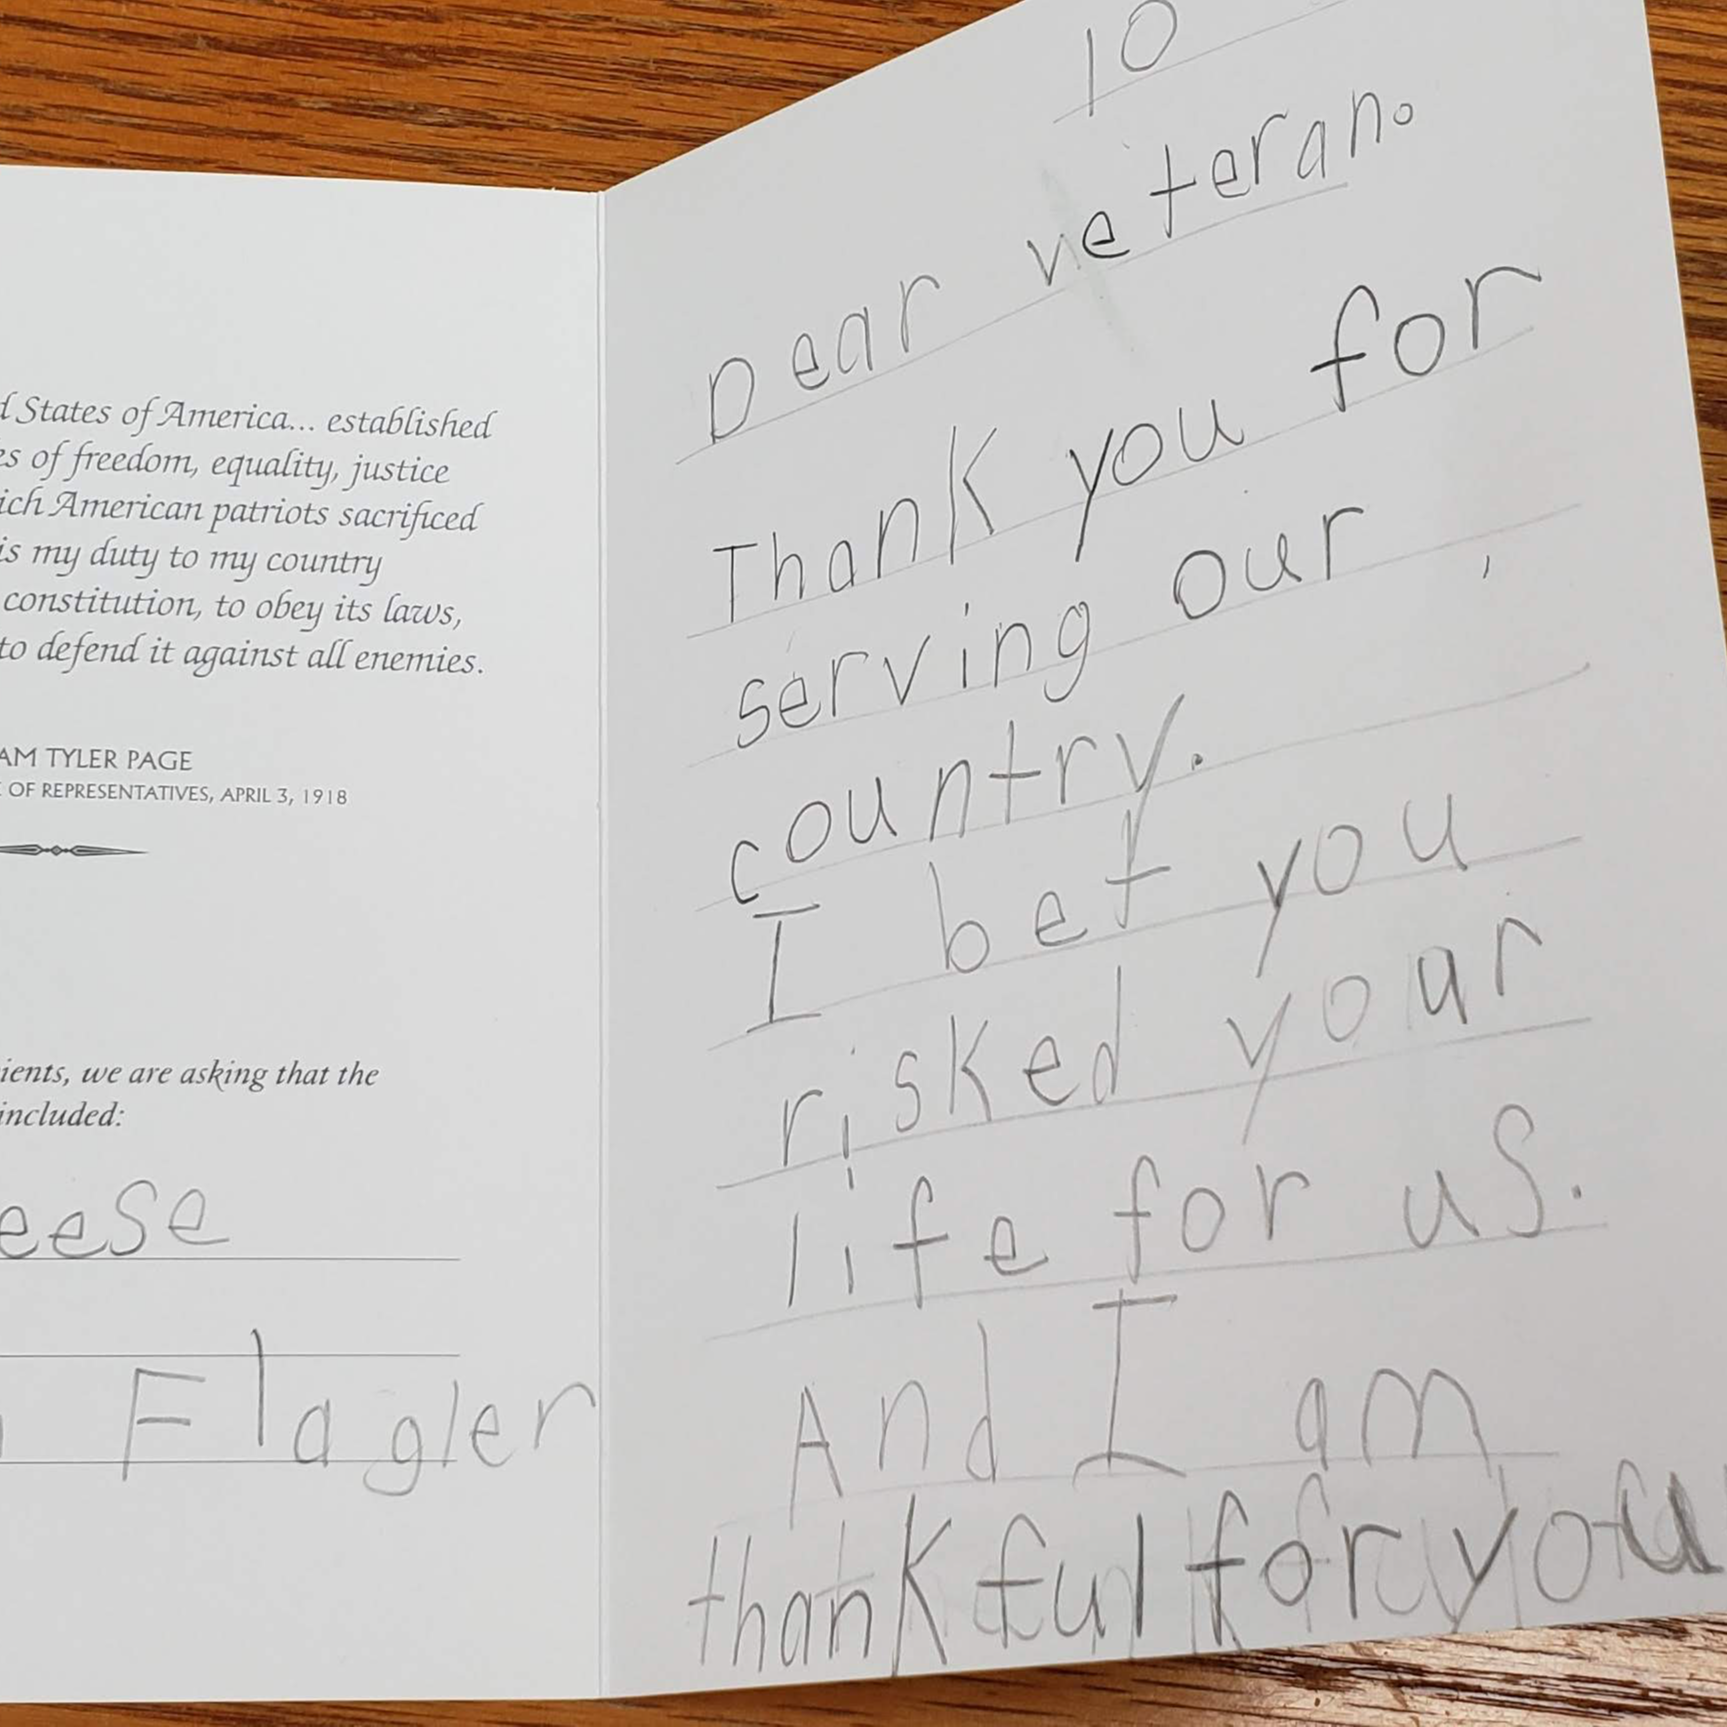 States of America... established
of freedom, equality, justice
American patriots sacrificed
is my duty to my country
constitution, to obey its laws,
to defend it against all enemies.
TYLER PAGE
OF REPRESENTATIVES, APRIL 3, 1918
we are asking that the
included:
eese
Flagler
10
Dear veteran.
Thank you for
serving our
country.
I bet you
risked your
life for us.
And I am
thankful for you